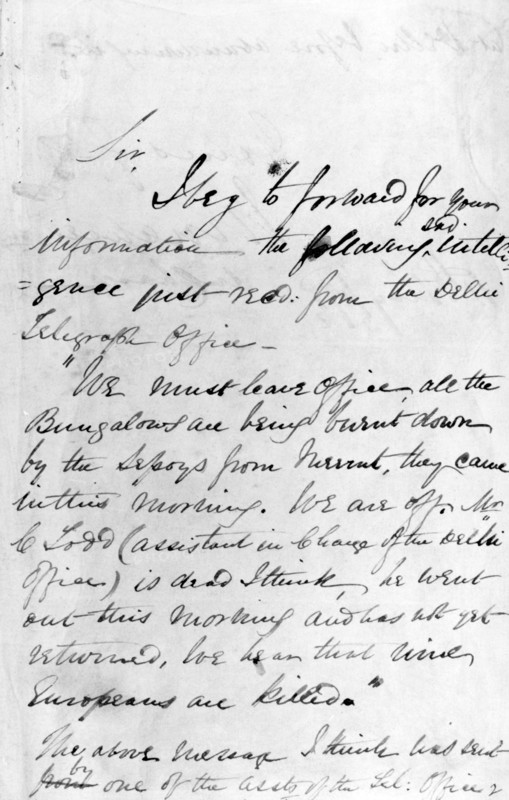 Sir,
I beg to forward for your
information the following sad intelli
=gence just recd: from the Delhi
Telegraph Office –
"We must leave office, all the
Bungalows are being burnt down
by the Sepoys from Meerut, they came
in this morning. We are off. Mr
C Todd (assistant in Charge of the Delhi
Office) is dead I think, he went
out this morning and has not yet
returned, We hear that nine
Europeans are killed."
The above message I think was sent
from by one of the assts of the Tel: Office